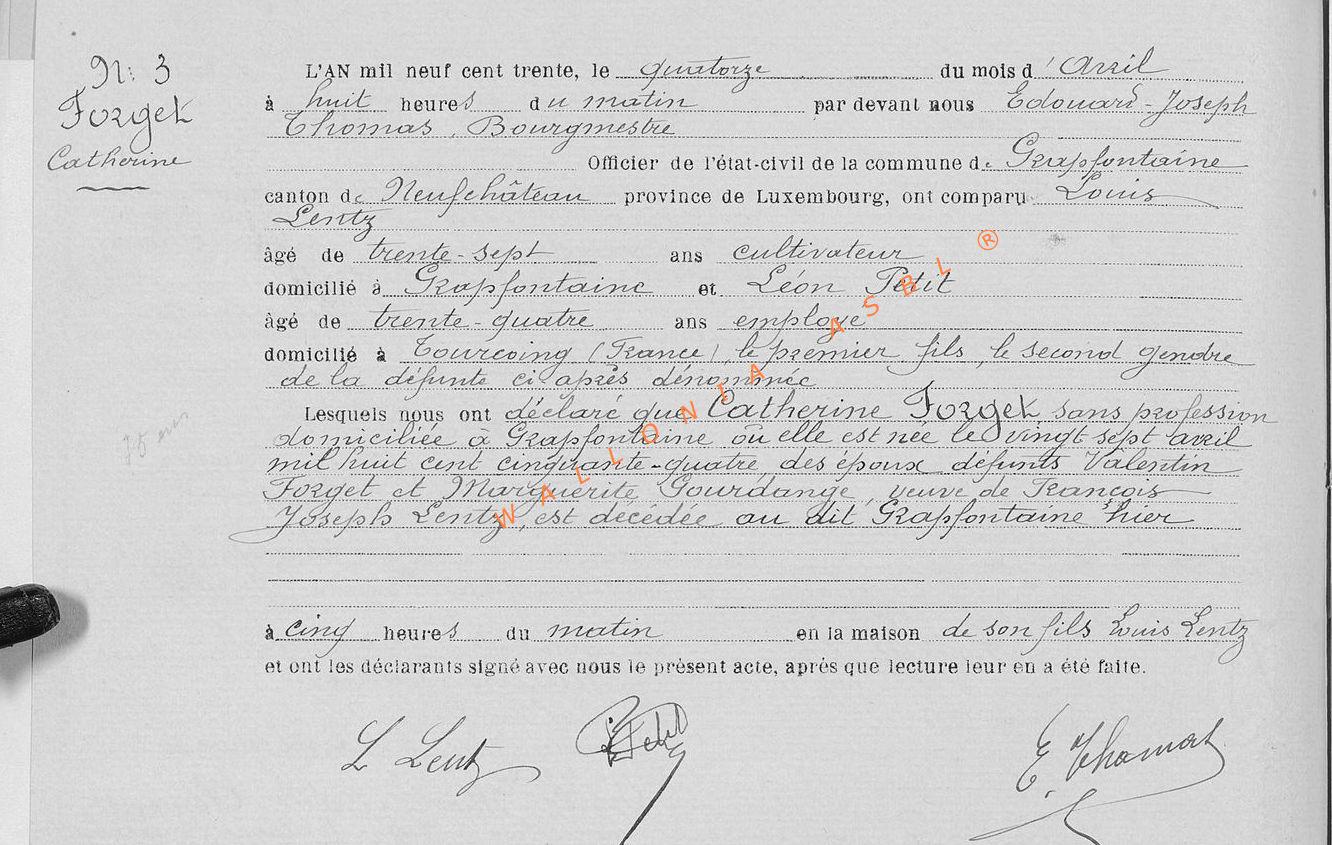 N: 3
Forget
Catherine
L'AN mil neuf cent trente, le quatorze du mois d'Avril
à huit heures du matin par devant nous Edouard-Joseph
Thomas, Bourgmestre
Officier de l'état-civil de la commune de Grapfontaine
canton de Neufchâteau province de Luxembourg, ont comparu Louis
Lentz
âgé de trente-sept ans cultivateur
domicilié à Grapfontaine et Léon Petit
âgé de trente-quatre ans employé
domicilié à Tourcoing (France) le premier fils, le second gendre
de la défunte ci après dénommée
Lesquels nous ont déclaré que Catherine Forget sans profession
domiciliée à Grapfontaine où elle est née le vingt sept avril
mil huit cent cinquante-quatre, des époux défunts Valentin
Forget et Marguerite Gourdange, veuve de François
Joseph Lentz, est décédée au dit Grapfontaine hier
à cinq heures du matin en la maison de son fils Louis Lentz
et ont les déclarants signé avec nous le présent acte, après que lecture leur en a été faite.
L Lentz
E Thomas
WALLONIA ASBL ®